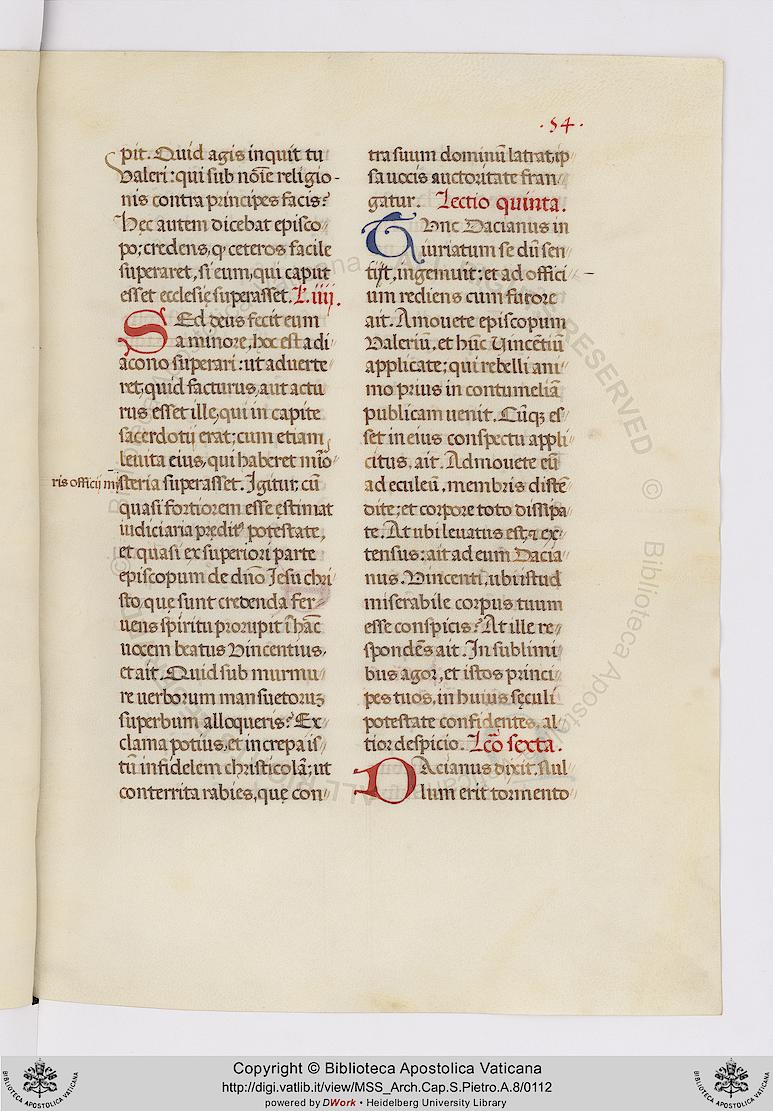 ·54·
pit. Quid agis inquit tu
Valeri: qui sub nōīe religio-
nis contra principes facis?
Hęc autem dicebat episco
po; credens, ꝙ ceteros facile
superaret, si eum, qui caput
esset ecclesię superasset. L. iiii.
SEd deus fecit eum
a minore, hoc est a di
acono superari: ut aduerte
ret; quid facturus, aut actu
rus esset ille, qui in capite
sacerdotij erat; cum etiam
leuita eius, qui haberet mīo
ris officij mīsteria superasset. Igitur, cū
quasi fortiorem esse ęstimat
iudiciaria prędit9 potestate,
et quasi ex superiori parte
episcopum de dn̄o Iesu chri
sto, que sunt credenda fer
uens spiritu prorupit ī hāc
uocem beatus Vincentius,
et ait. Quid sub murmu
re uerborum mansuetoruꝫ
superbum alloqueris? Ex
clama potius, et increpa is
tū infidelem christicolā; ut
conterrita rabies, quę con
tra suum dominū latrat; ip
sa uocis auctoritate fran
gatur. Lectio quinta.
TVnc Dacianus in
iuriatum se dū sen
tijt, ingemuit: et ad offici
um rediens cum furore
ait. Amouete episcopum
Valeriū, et hūc Vincētiū
applicate; qui rebelli ani
mo prius in contumeliā
publicam uenit. Cūqꝫ es
set in eius conspectu appli
citus, ait. Admouete eū
ad eculeū, membris distē
dite; et corpore toto dissipa
te. At ubi leuatus est, ⁊ ex
tensus: ait ad eum Dacia
nus. Vincenti, ubi istud
miserabile corpus tuum
esse conspicis? At ille re
spondēs ait. In sublimi
bus agor, et istos princi
pes tuos, in huius sęculi
potestate confidentes, al
tior despicio. Lcō sexta.
DAcianus dixit. Nul
lum erit tormento
© Biblioteca Apostolica Vaticana ALL RIGHTS RESERVED
Copyright © Biblioteca Apostolica Vaticana
http://digi.vatlib.it/view/MSS_Arch.Cap.S.Pietro.A.8/0112
powered by DWork • Heidelberg University Library
BIBLIOTECA APOSTOLICA VATICANA
BIBLIOTECA APOSTOLICA VATICANA